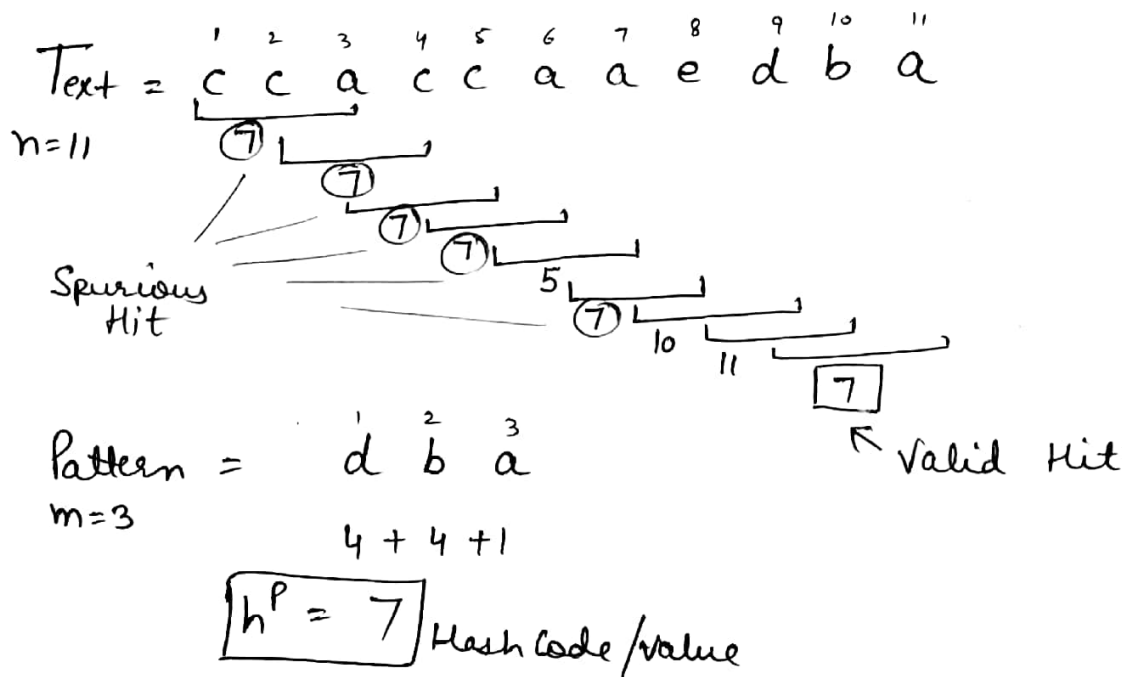 1 2 3 4 5 6 7 8 9 10 11
Text = c c a c c a a e d b a
n=11
7
7
7
7
5
7
10
11
7
Spurious
Hit
Valid Hit
1 2 3
Pattern = d b a
m=3
4 + 4 + 1
h^P = 7 Hash code/value